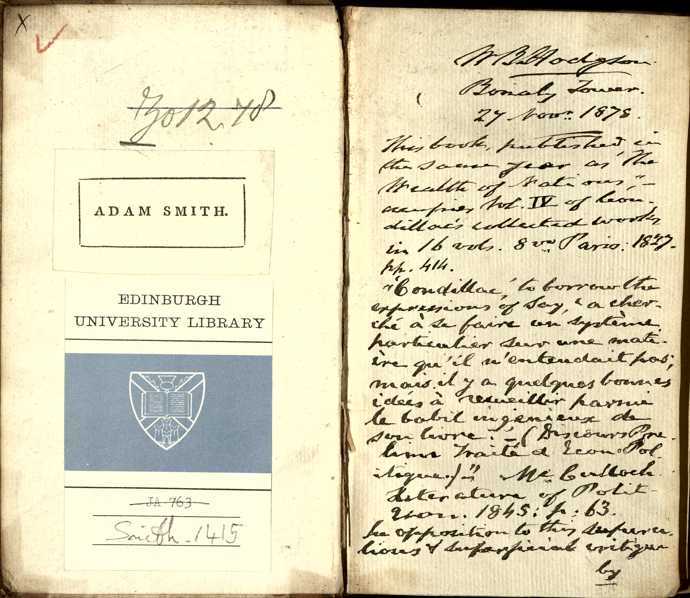 Zo 12.78
ADAM SMITH.
EDINBURGH
UNIVERSITY LIBRARY
JA 763
Smith. 1415
W B Hodgson.
Bonaly Tower.
27 Novr. 1878.
This book, published in
the same year as 'The
Wealth of Nations', –
occupies Vol. IV of Con-
dillac's collected works
in 16 vols. 8vo Paris: 1827.
pp. 414.
"Condillac, to borrow the
expressions of Say, 'a cher-
ché à se faire un système
particulier sur une mat-
ière qu'il n'entendait pas;
mais il y a quelques bonnes
idées à recueillir parmi
le babil ingénieux de
son livre.' – (Discours Pre-
lim: Traité d' Econ: Pol-
itique.)" McCulloch
Literature of Polit
Econ. 1845: p: 63.
In opposition to this superci-
lious & superficial critique
by